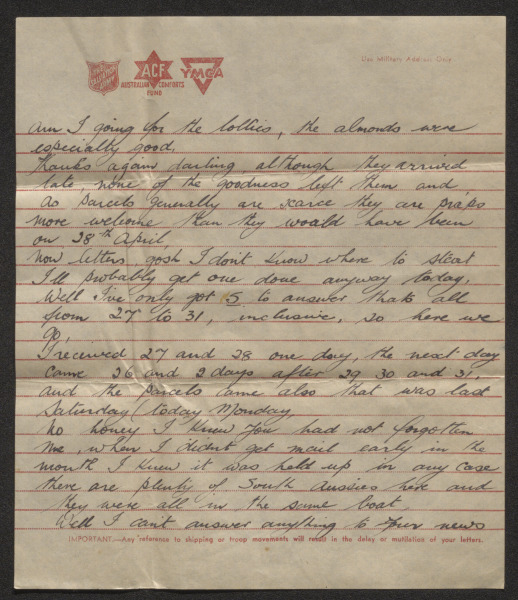 THE SALVATION ARMY
ACF
AUSTRALIAN COMFORTS FUND
YMCA
Use Military Address Only
am I going for the lollies, the almonds were
especially good.
Thanks again darling although they arrived
late, none of the goodness left them and
as parcels generally are scarce they are p'raps
more welcome than they would have been
on 28th April,
Now letters, gosh I don't know where to start
I'll probably get one done anyway today.
Well I've only got 5 to answer thats all
from 27 to 31, inclusive, so here we
go,
I received 27 and 28 one day, the next day
came 26 and 2 days after 29 30 and 31
and the parcels came also that was last
Saturday (today Monday
No honey I knew you had not forgotten
me, when I didnt get mail early in the
month I knew it was held up in any case
there are plenty of South Aussies here and
they were all in the same boat.
Well I can't answer anything to your news
IMPORTANT.—Any reference to shipping or troop movements will result in the delay or mutilation of your letters.